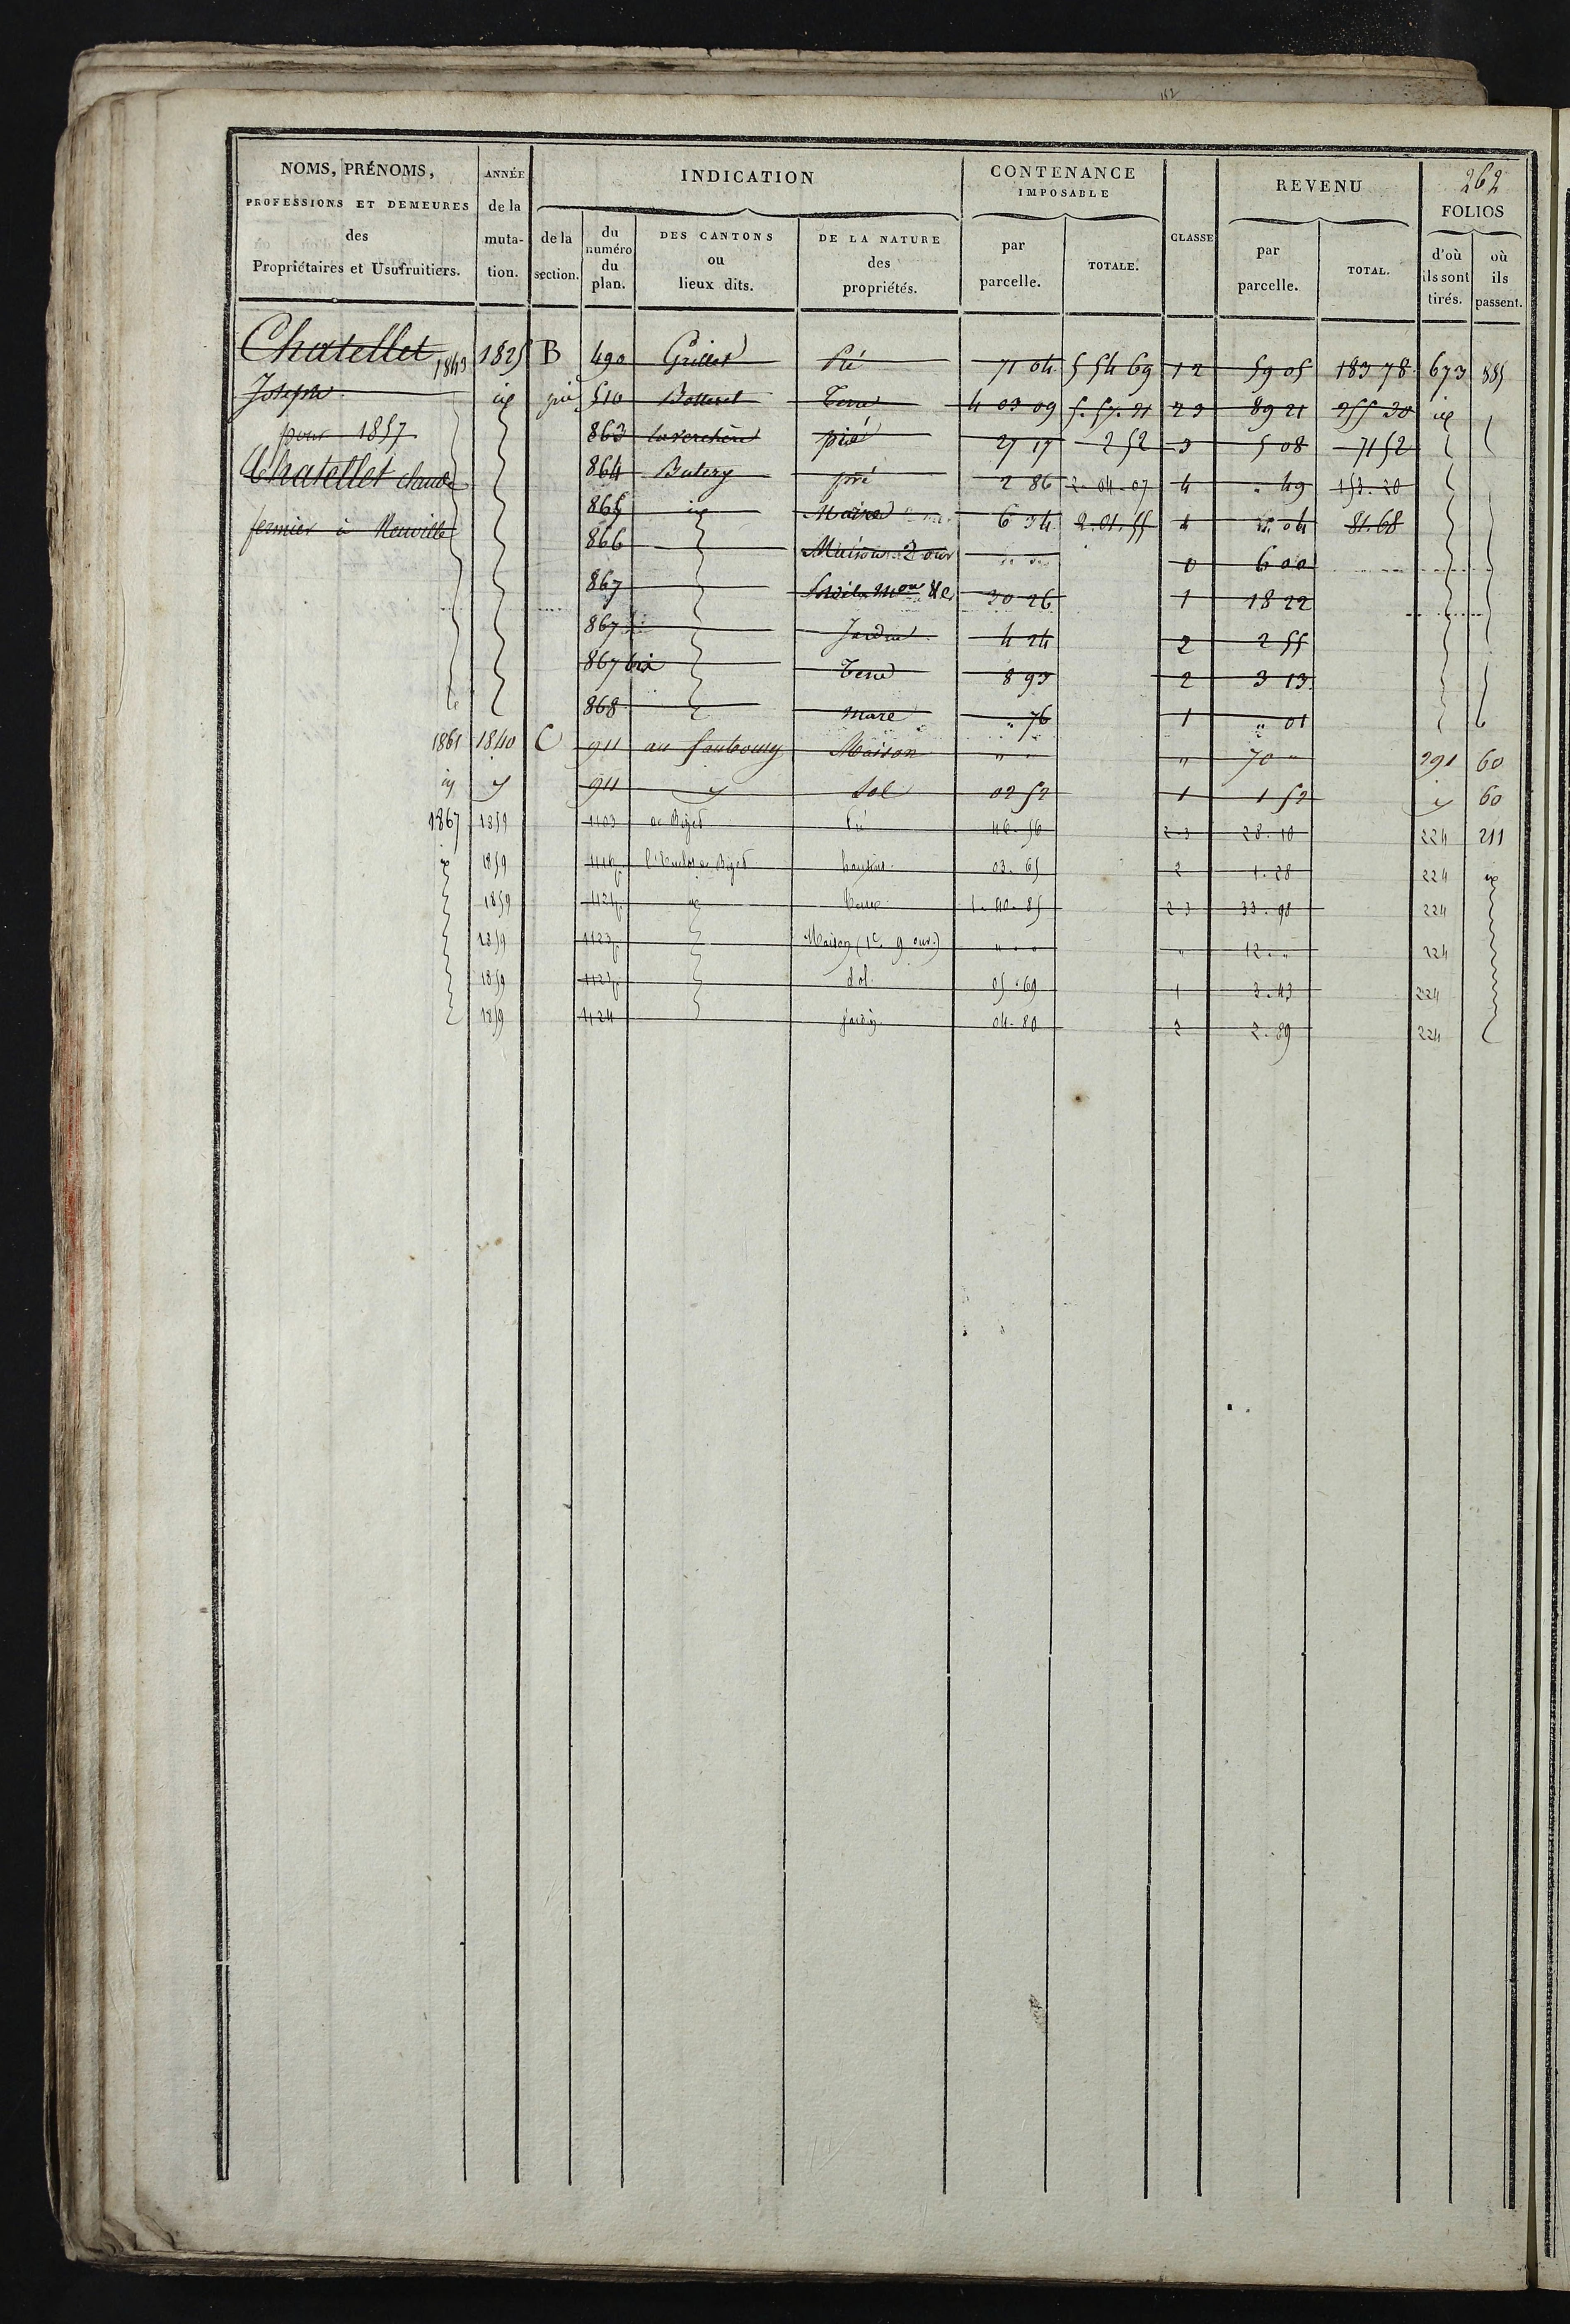 162
NOMS, PRÉNOMS, PROFESSIONS ET DEMEURES des Propriétaires et Usufruitiers. ANNÉE de la muta-tion. INDICATION de la section. du numéro du plan. DES CANTONS ou lieux dits. DE LA NATURE des propriétés. CONTENANCE IMPOSABLE par parcelle. TOTALE. CLASSE REVENU par parcelle. TOTAL. 262 FOLIOS d'où ils sont tirés. où ils passent.
Chatellet 1843 1825 B 490 Grillet Pré 71 04 5 54 69 1 2 59 05 183 78 673 885
Joseph id 510 Terre 4 03 09 2 3 89 21 255 30 id
pour 1857 863 pré 27 17 2 52 3 5 08 71 52
Chatellet claude 864 Butery pré 2 86 2. 04. 07 4 " 49 153. 20
fermier à Neuville 865 id 6 34 2. 01. 55 4 " 04 81. 68
866 Maison 2 ouv " " 0 6 00
867 20 26 1 18 22
867 Jardin 4 24 2 2 55
867 bis Terre 8 93 2 3 13
868 Mare " 76 1 " 01
1861 1840 C 911 au faubourg Maison " " " 70 " 291 60
id id 911 id Sol 02 52 1 1 52 id 60
1867 1859 1103 Pré 46. 56 2 3 28. 10 224 211
id 1859 03. 65 2 1. 28 224 id
1859 id Terre 1. 40. 85 2 3 33. 98 224
1859 1123 Maison (1e 9 ouv.) " " " 12. " 224
1859 1123 Sol 05. 69 1 3. 43 224
1859 1124 Jardin 04. 80 2 2. 89 224